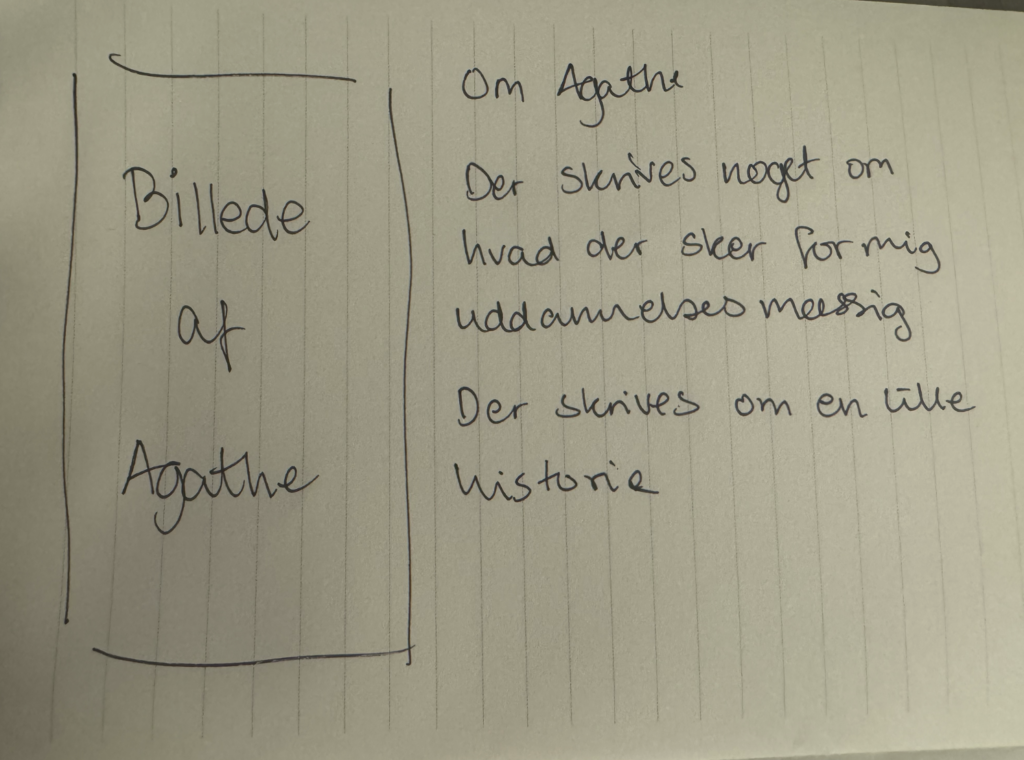 Billede
af
Agathe
Om Agathe
Der skrives noget om
hvad der sker for mig
uddannelsesmæssig
Der skrives om en lille
historie